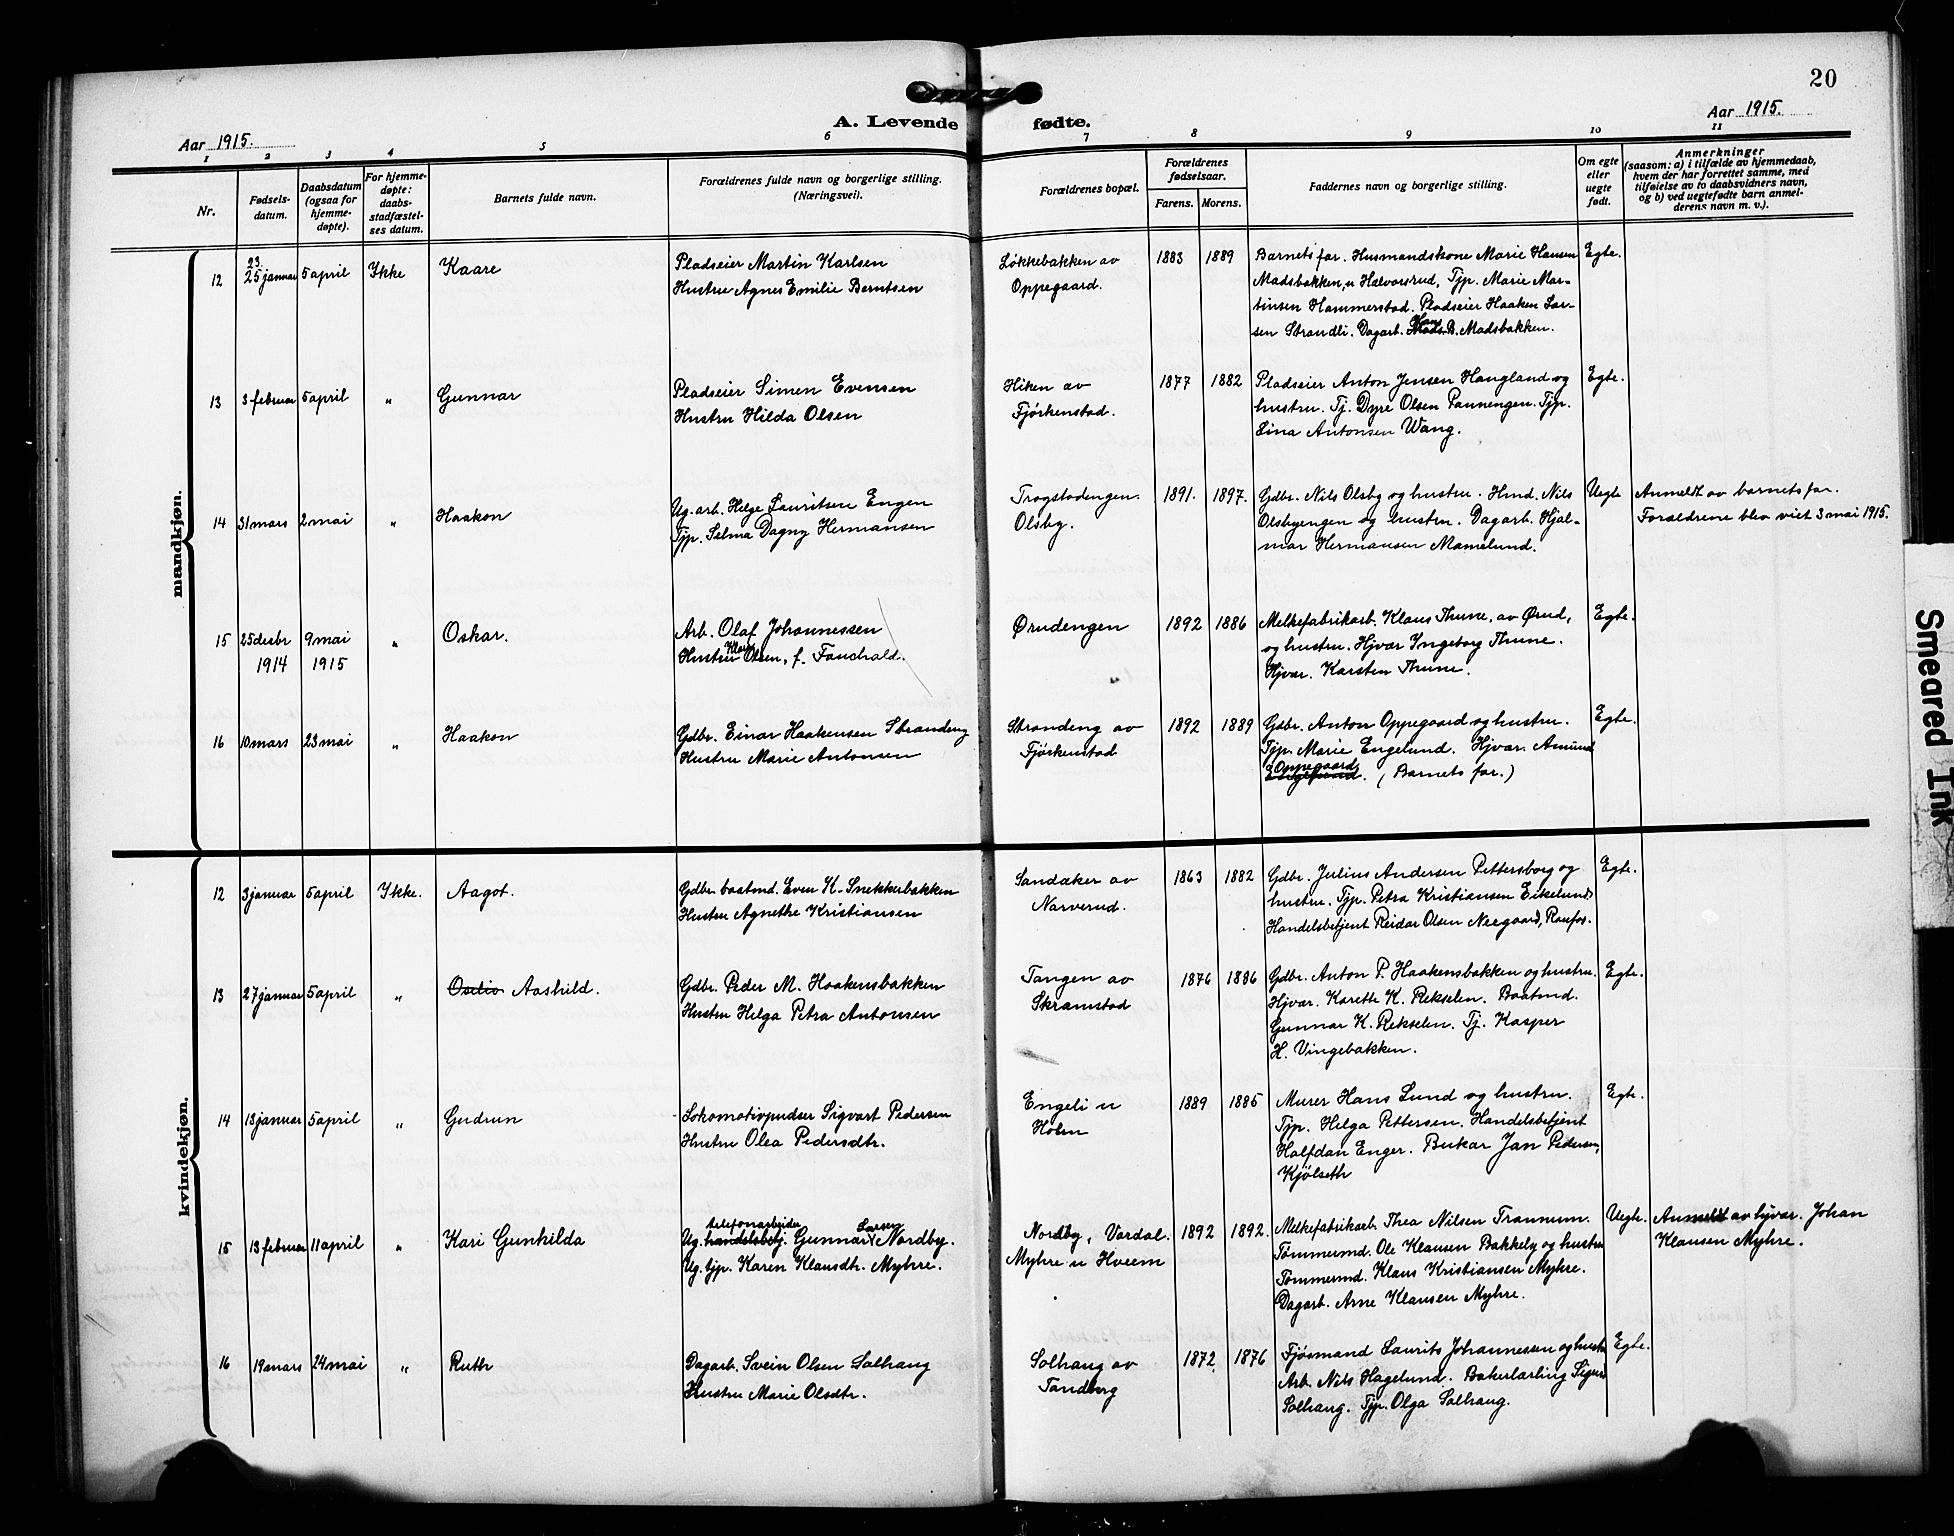 20
Aar 1915.
A. Levende fødte.
Aar 1915.
1 2 3 4 5 6 7 8 9 10 11
Nr.
Fødsels-
datum.
Daabsdatum
(ogsaa for
hjemme-
døpte).
For hjemme-
døpte:
daabs-
stadfæstel-
ses datum.
Barnets fulde navn.
Forældrenes fulde navn og borgerlige stilling.
(Næringsvei).
Forældrenes bopæl.
Forældrenes
fødselsaar.
Farens. Morens.
Faddernes navn og borgerlige stilling.
Om egte
eller
uegte
født.
Anmerkninger
(saasom: a) i tilfælde av hjemmedaab,
hvem der har forrettet samme, med
tilføielse av to daabsvidners navn,
og b) ved uegtefødte barn anmel-
derens navn m. v.).
mandkjøn.
12 23. 25 januar 5 april Ikke Kaare
Pladseier Martin Karlsen
Hustru Agnes Emilie Berntsen
Løkkebakken av
Oppegaard.
1883 1889
Barnets far. Husmandskone Marie Hansen
Madsbakken u Halvorsrud, Tjp. Marie Mar-
tinsen Hammerstad. Pladseier Haaken Lar-
sen Strandli. Dagarb. Hans B. Madsbakken.
Egte.
13 3 februar 5 april " Gunnar
Pladseier Simen Evensen
Hustru Hilda Olsen
Hiken av
Fjørkenstad.
1877 1882
Pladseier Anton Jensen Haugland og
hustru. Tj. Dyre Olsen Pannengen. Tjp.
Lina Antonsen Wang.
Egte.
14 31 mars 2 mai " Haakon
Ug. arb. Helge Lauritsen Engen
Tjp. Selma Dagny Hermansen
Trogstadengen.
Olsby.
1891. 1897.
Gdbr. Nils Olsby og hustru. Hmd. Nils
Olsbyengen og hustru. Dagarb. Hjal-
mar Hermansen Mamelund.
Uegte
Anmeldt av barnets far.
Forældrene blev viet 3 mai 1915.
15 25 desbr 9 mai " Oskar.
1914 1915
Arb. Olaf Johannessen
Hustru Klara Olsen, f. Fauchald.
Ørudengen
1892 1886
Melkefabrikarb. Klaus Thune, av Ørud,
og hustru. Hjvær Ingeborg Thune.
Hjvær. Karsten Thune.
Egte.
16 10 mars 23 mai " Haakon
Gdbr. Einar Haakensen Strandeng
Hustru Marie Antonsen
Strandeng av
Fjørkenstad
1892 1889
Gdbr. Anton Oppegaard og hustru.
Tjp. Marie Engelund. Hjvær. Amund
Oppegaard Engelund. (Barnets far.)
Egte.
kvindekjøn.
12 3 januar 5 april Ikke. Aagot.
Gdbr. baatmd. Even K. Snekkerbakken
Hustru Agnethe Kristiansen
Sandaker av
Narverud.
1863 1882
Gdbr. Julius Andersen Pettersborg og
hustru. Tjp. Petra Kristiansen Eikelund.
Handelsbetjent Reidar Olsen Neegaard, Raufos.
Egte.
13 27 januar 5 april " Aashild.
Gdbr. Peder M. Haakensbakken
Hustru Helga Petra Antonsen
Tangen av
Skramstad
1876 1886
Gdbr. Anton P. Haakensbakken og hustru.
Hjvær. Karette K. Rekselen. Baatmd.
Gunnar K. Rekselen. Tj. Kasper
H. Vingebakken.
Egte.
14 13 januar 5 april " Gudrun
Lokomotivpudser Sigvart Pedersen
Hustru Olea Pedersdtr.
Engeli u
Holm
1889 1885
Murer Hans Lund og hustru.
Tjp. Helga Pettersen. Handelsbetjent
Halfdan Enger. Buskar Jan Pedersen,
Kjølseth
Egte.
15 13 februar 11 april " Kari Gunhilda
telefonarbeider Larsen
Ug. handelsbetj. Gunnar Nordby.
Ug. tjp. Karen Klausdtr. Myhre.
Nordby, Vardal.
Myhre u Hveem
1892 1892.
Melkefabrikarb. Thea Nilsen Trannum.
Tømmermd. Ole Klausen Bakkely og hustru
Tømmermd. Klaus Kristiansen Myhre.
Dagarb. Arne Klausen Myhre.
Uegte.
Anmeldt av hjvær. Johan
Klausen Myhre.
16 19 mars 24 mai " Ruth
Dagarb. Svein Olsen Solhaug
Hustru Marie Olsdtr.
Solhaug av
Tandberg
1872 1876
Fjøsmand Laurits Johannessen og hustru
Arb. Nils Hagelund. Bakerlærling Sigurd
Solhaug. Tjp. Olga Solhaug.
Egte.
Smeared Ink